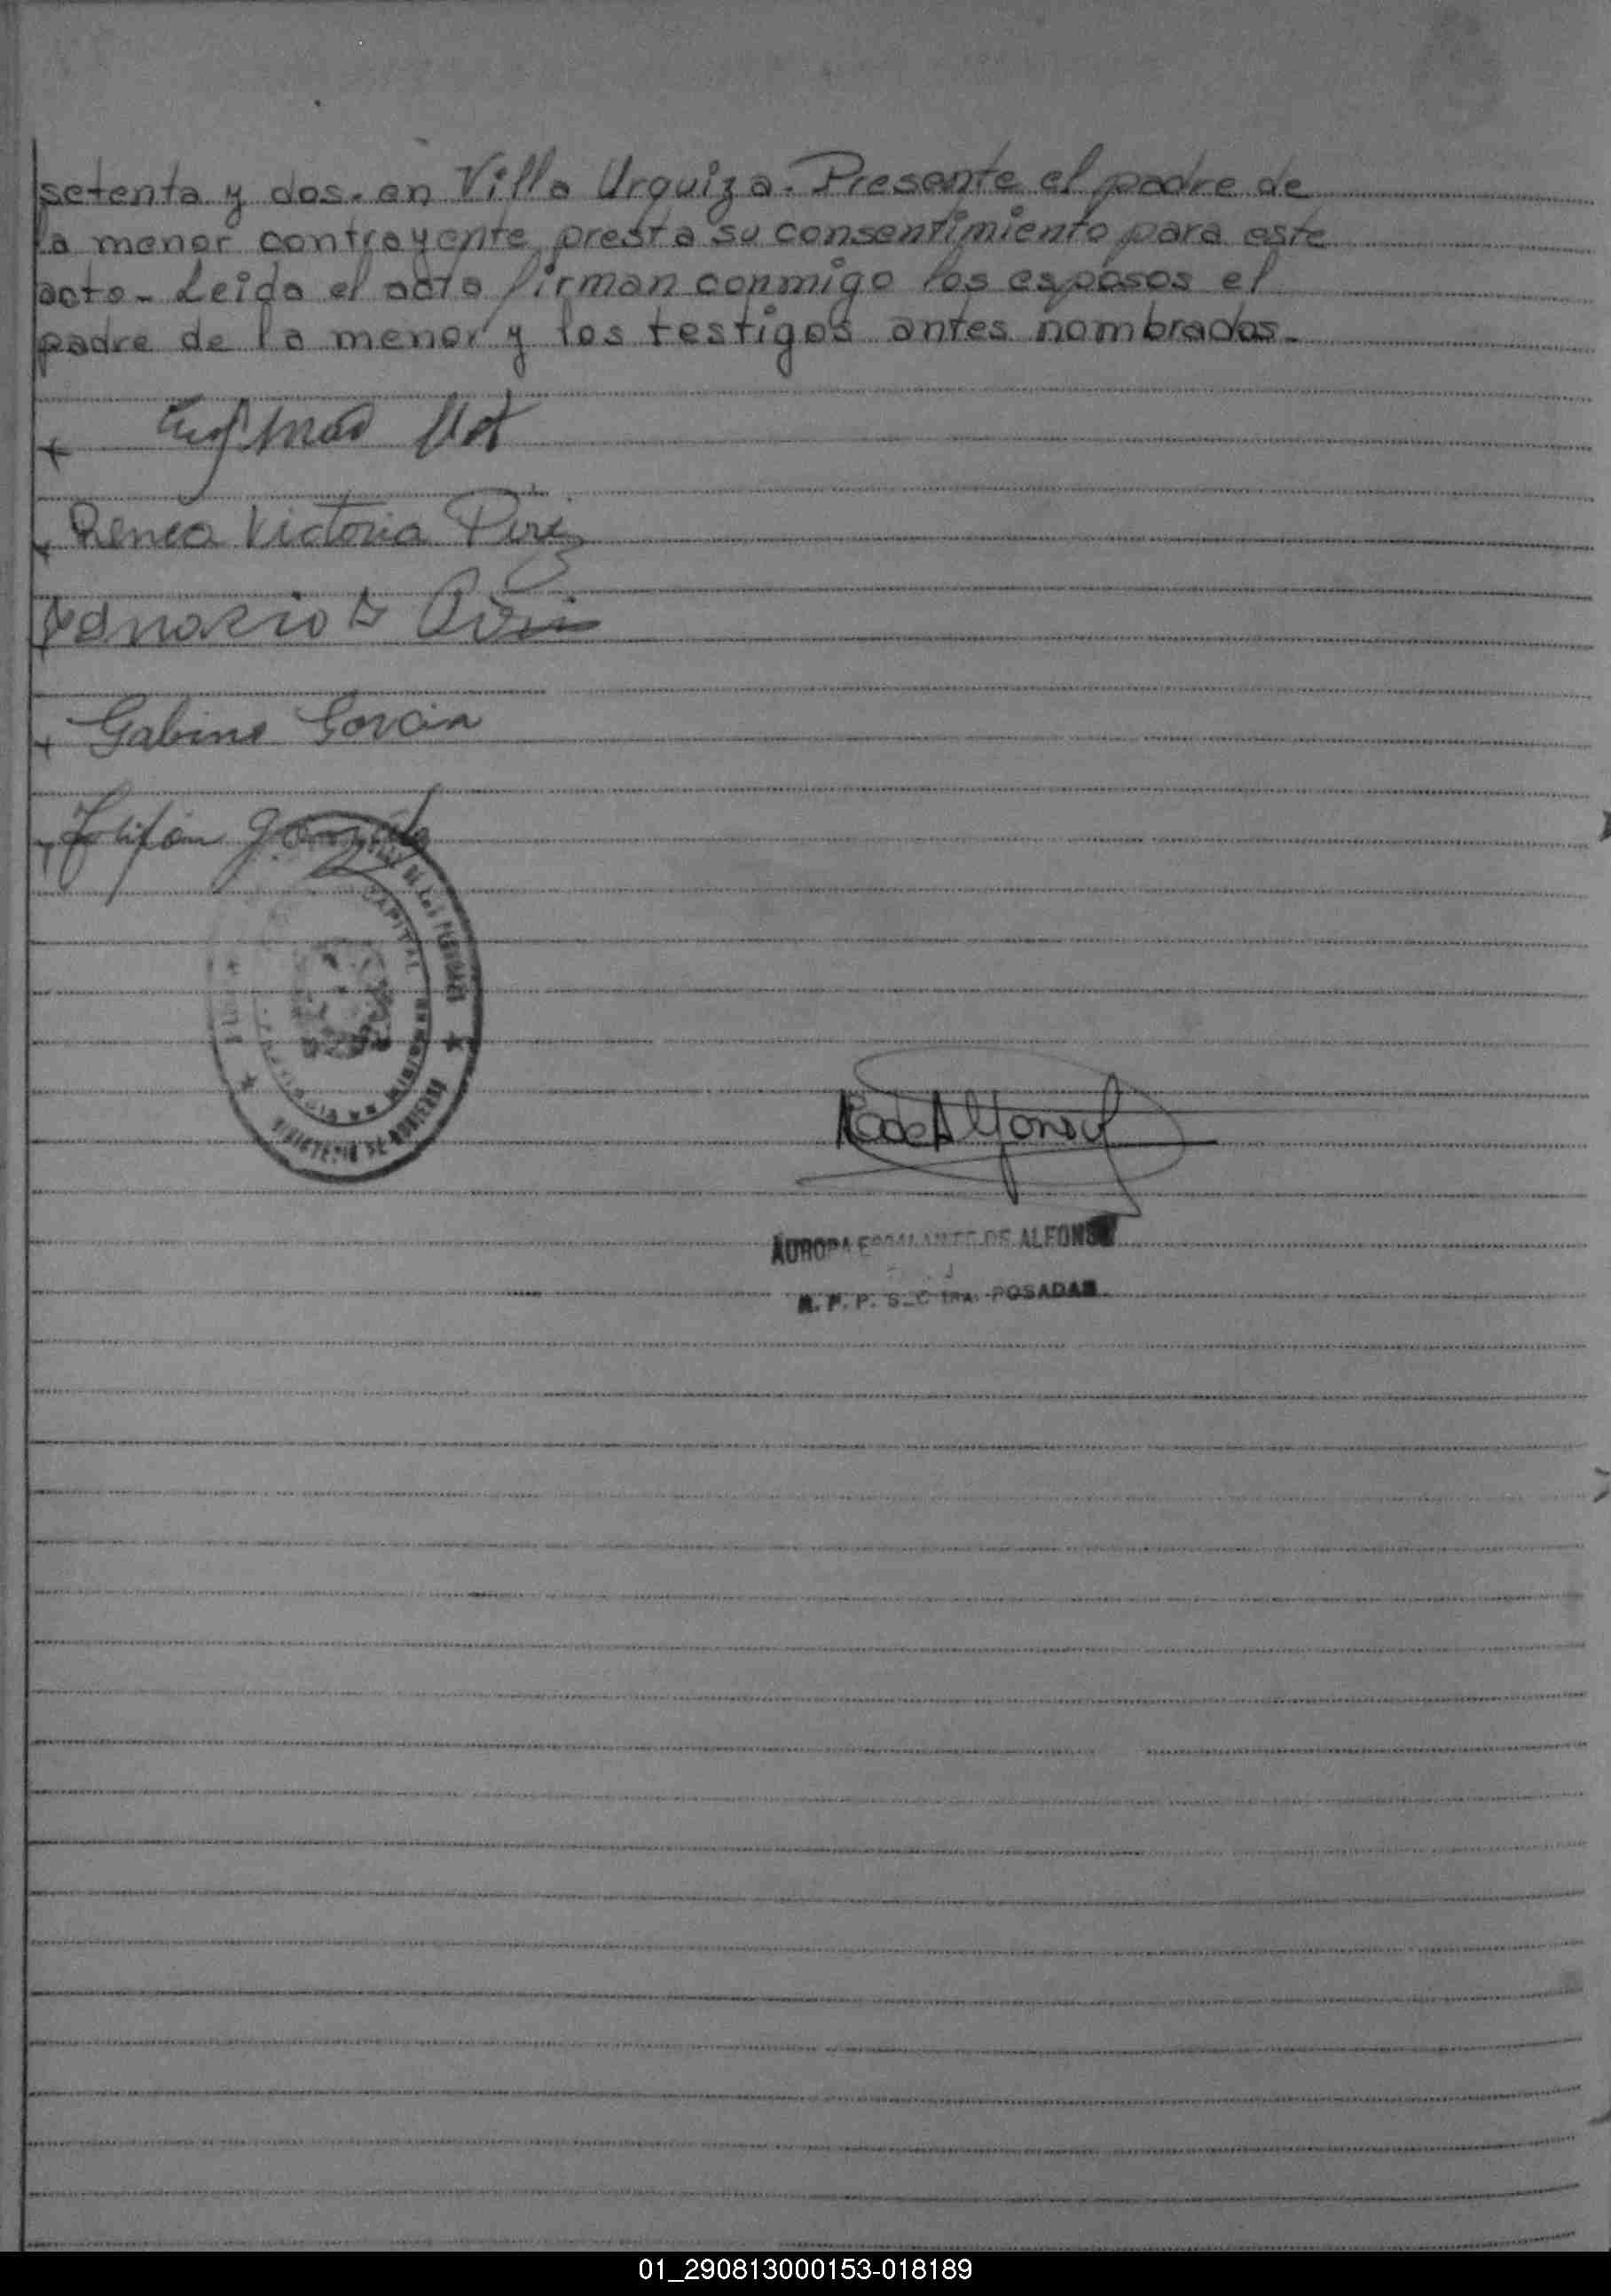 setenta y dos. en Villa Urquiza. Presente el padre de
la menor contrayente presta su consentimiento para este
acto. Leída el acta firman conmigo los esposos el
padre de la menor y los testigos antes nombrados.
Renea Victoria
Gabino
González
CAPITAL
MINISTERIO DE GOBIERNO
E. de Alfonso
AURORA ESCALANTE DE ALFONSO
POSADAS
01_290813000153-018189